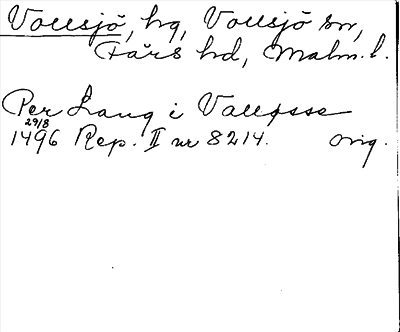 Vollsjö, hg, Vollsjö sn,
Färs hd, Malm. l.
Per Lang i Vallesse
29/8
1496 Rep. II nr 8214. orig.